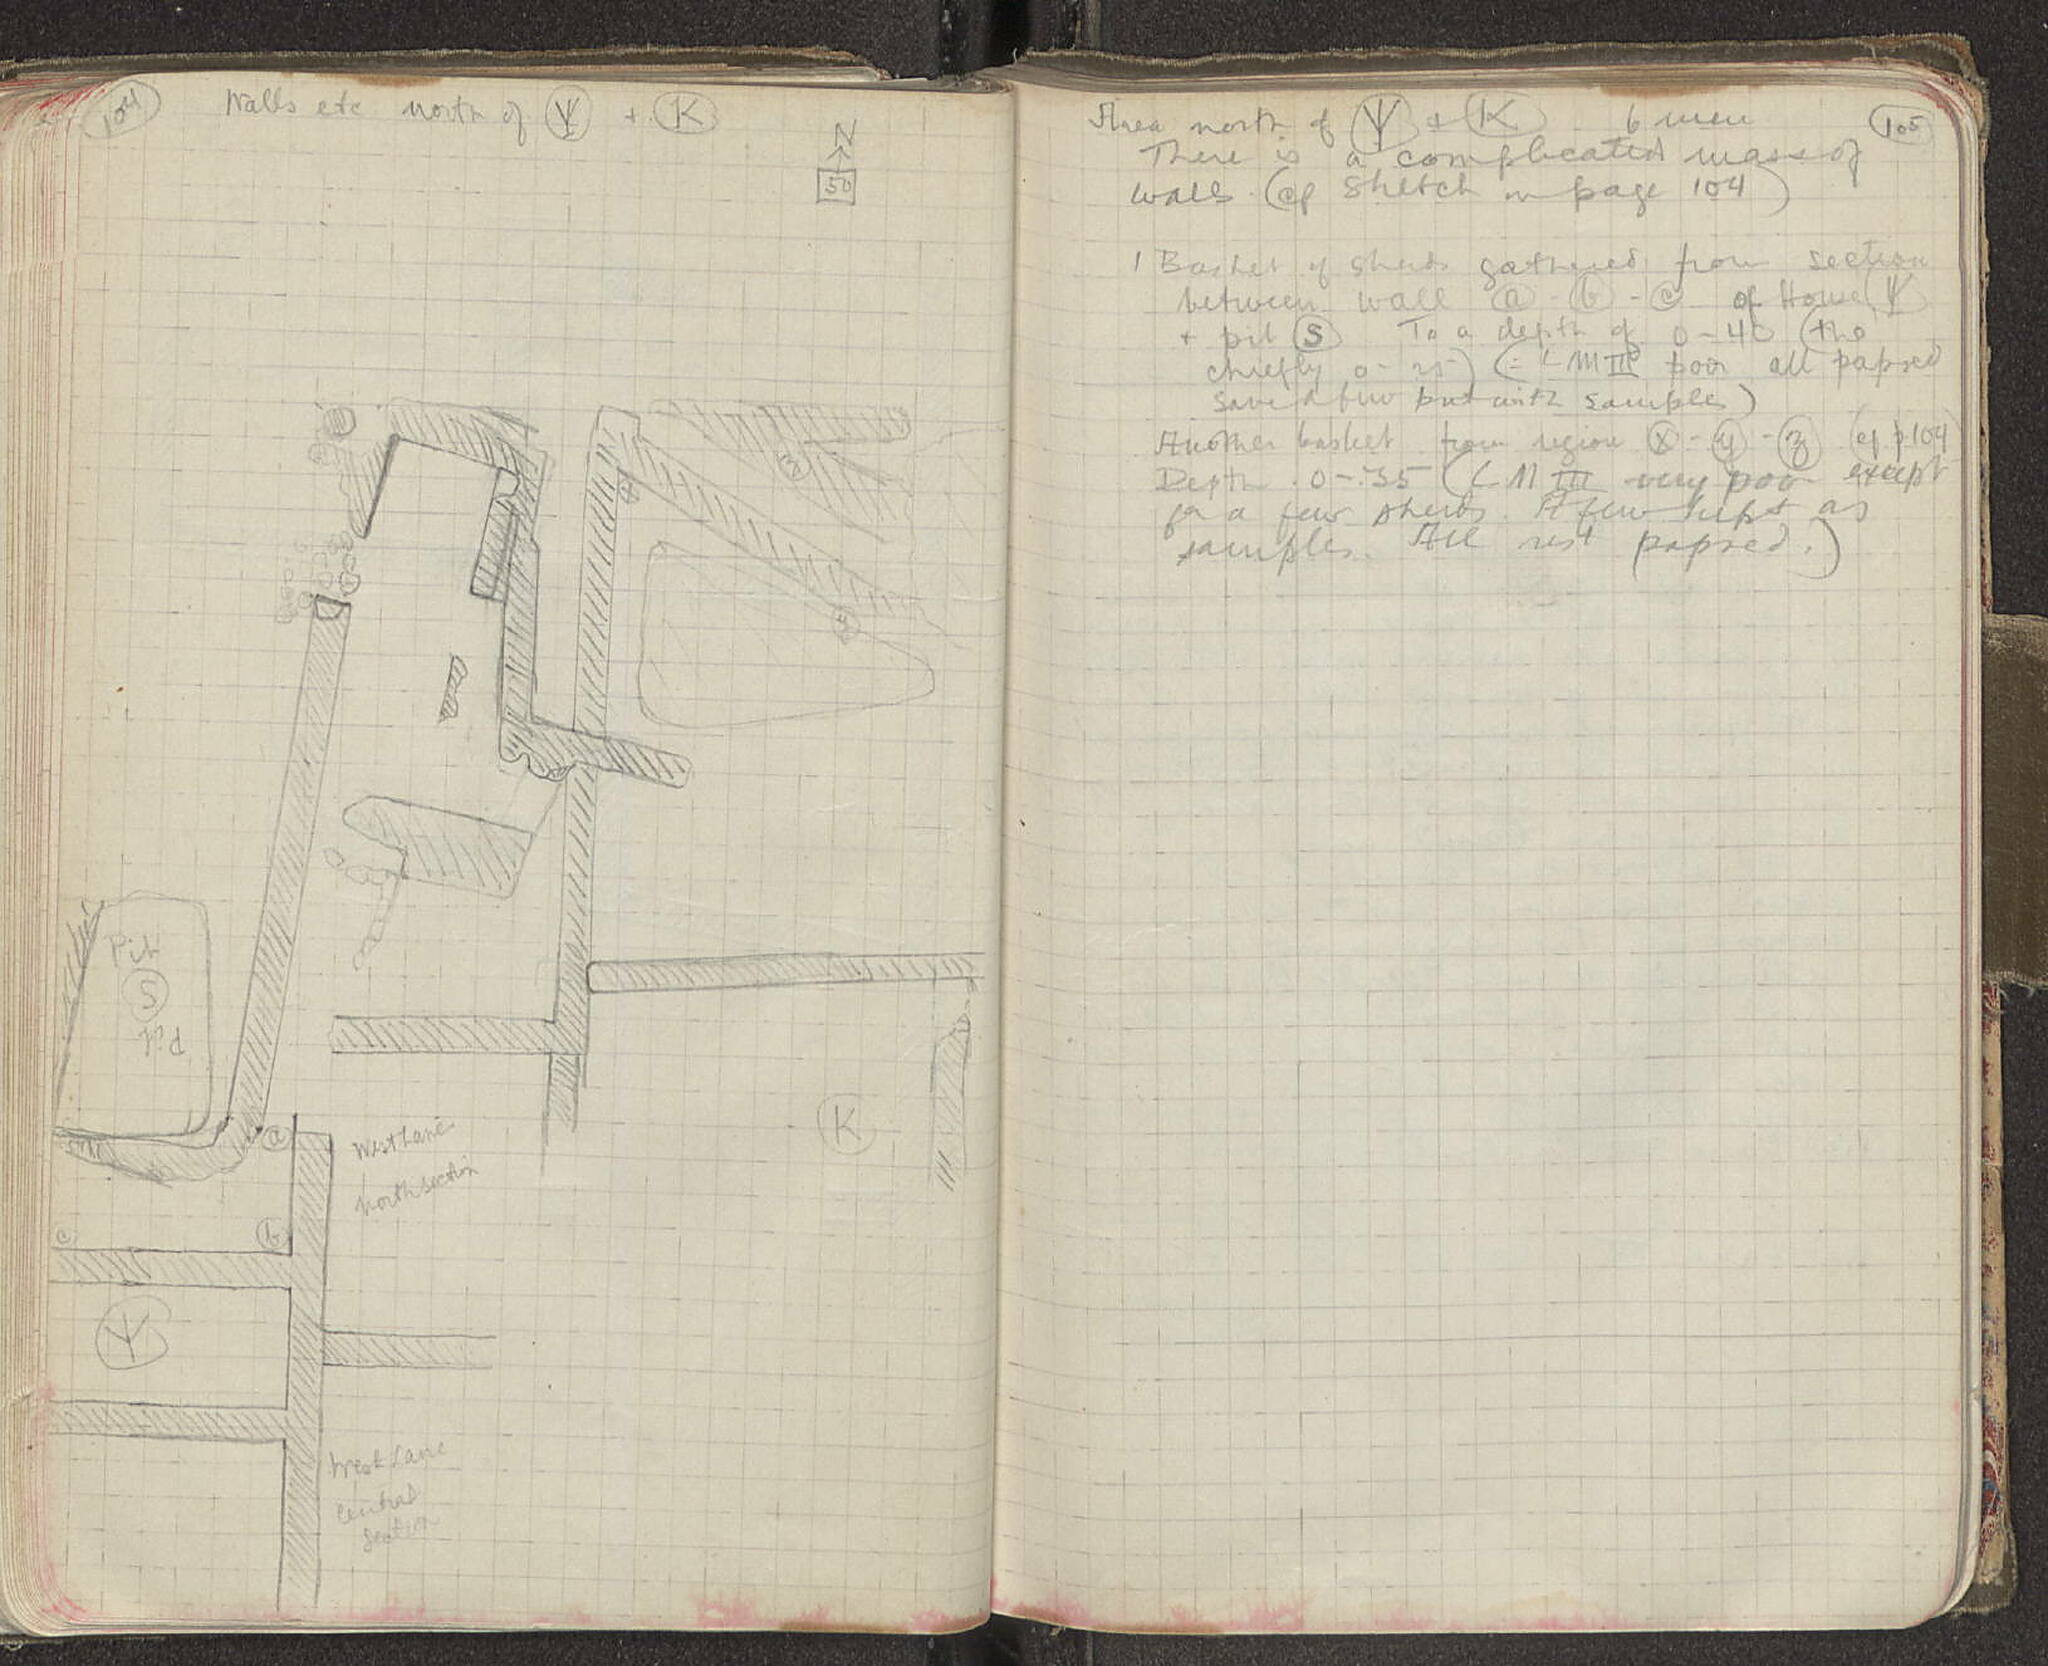 104
Walls etc north of Ψ + K
N
50
x
z
y
Pit
S
Pit
K
a
West Lane
north section
b
c
Ψ
West Lane
Central
Section
Area north of Ψ + K 6 men
105
There is a complicated mass of
walls. (cf sketch on page 104)
1 Basket of sherds gathered from section
between wall a - b - c of House Ψ
+ pit S To a depth of 0-40 (tho
chiefly 0-25) (= LM III poor all papsed
save a few put with samples)
Another basket from region x - y - z (cf p 104
Depth .0-.35 (LM III very poor except
for a few sherds. A few kept as
samples. All rest papsed.)